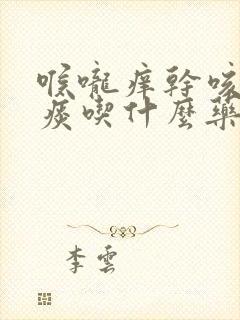 喉嚨痒幹咳
痰喫什麼藥
李雲